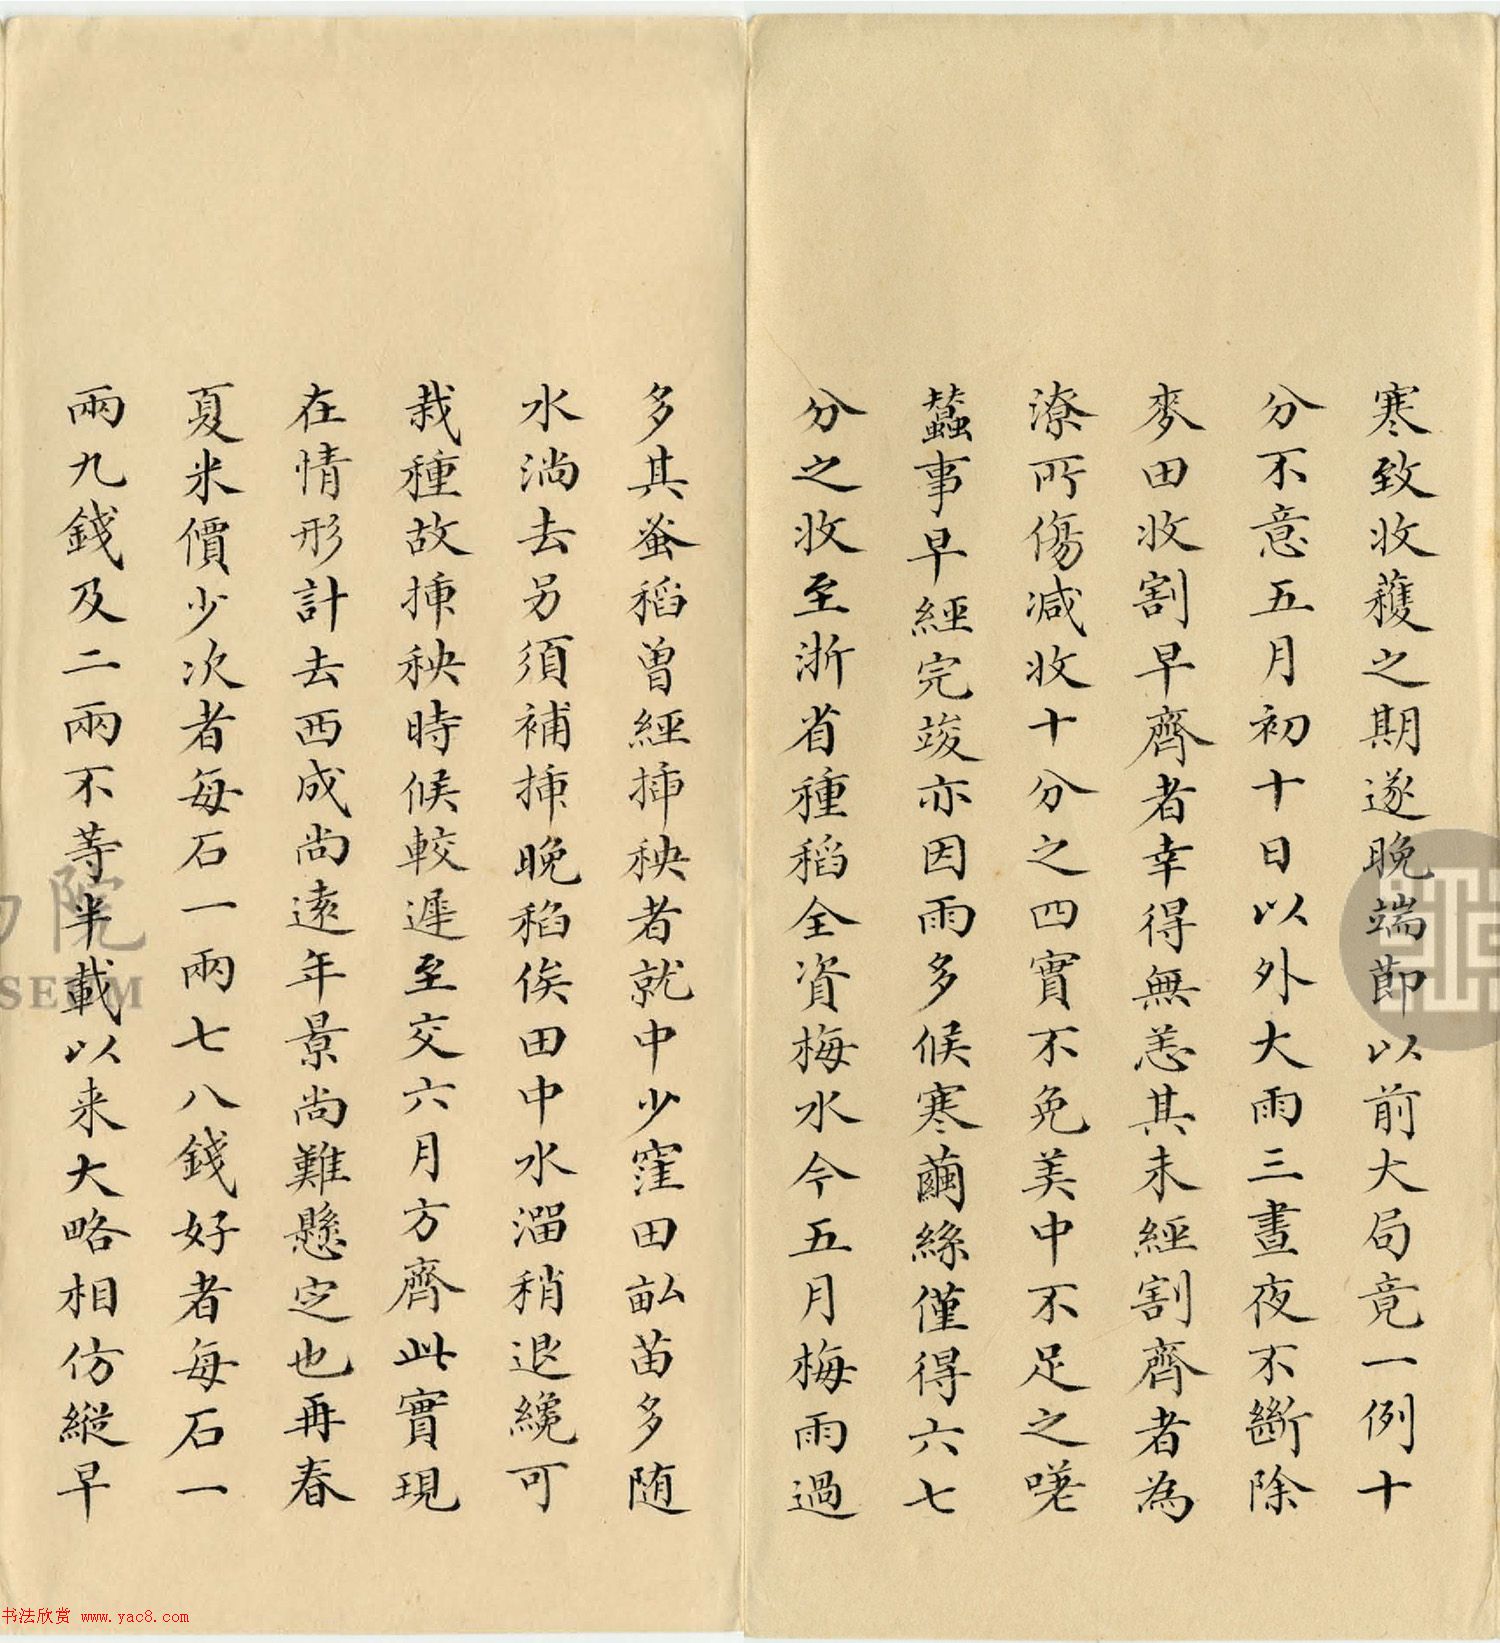 寒致收蘀之期遂晚端節以前大局竟一例十
分不意五月初十日以外大雨三晝夜不斷除
麥田收割早齊者幸得無恙其未經割齊者為
潦所傷減收十分之四實不免美中不足之嘆
蠶事早經完竣亦因雨多候寒繭絲僅得六七
分之收至浙省種稻全資梅水今五月梅雨過
多其蚤稻曾經插秧者就中少窪田畝苗多随
水淌去另須補插晚稻俟田中水溜稍退纔可
栽種故插秧時候較遲至交六月方齊此實現
在情形計去西成尚遠年景尚難懸定也再春
夏米價少次者每石一兩七八錢好者每石一
兩九錢及二兩不等半載以来大略相仿縱早
院
SEUM
书法欣赏 www.yac8.com